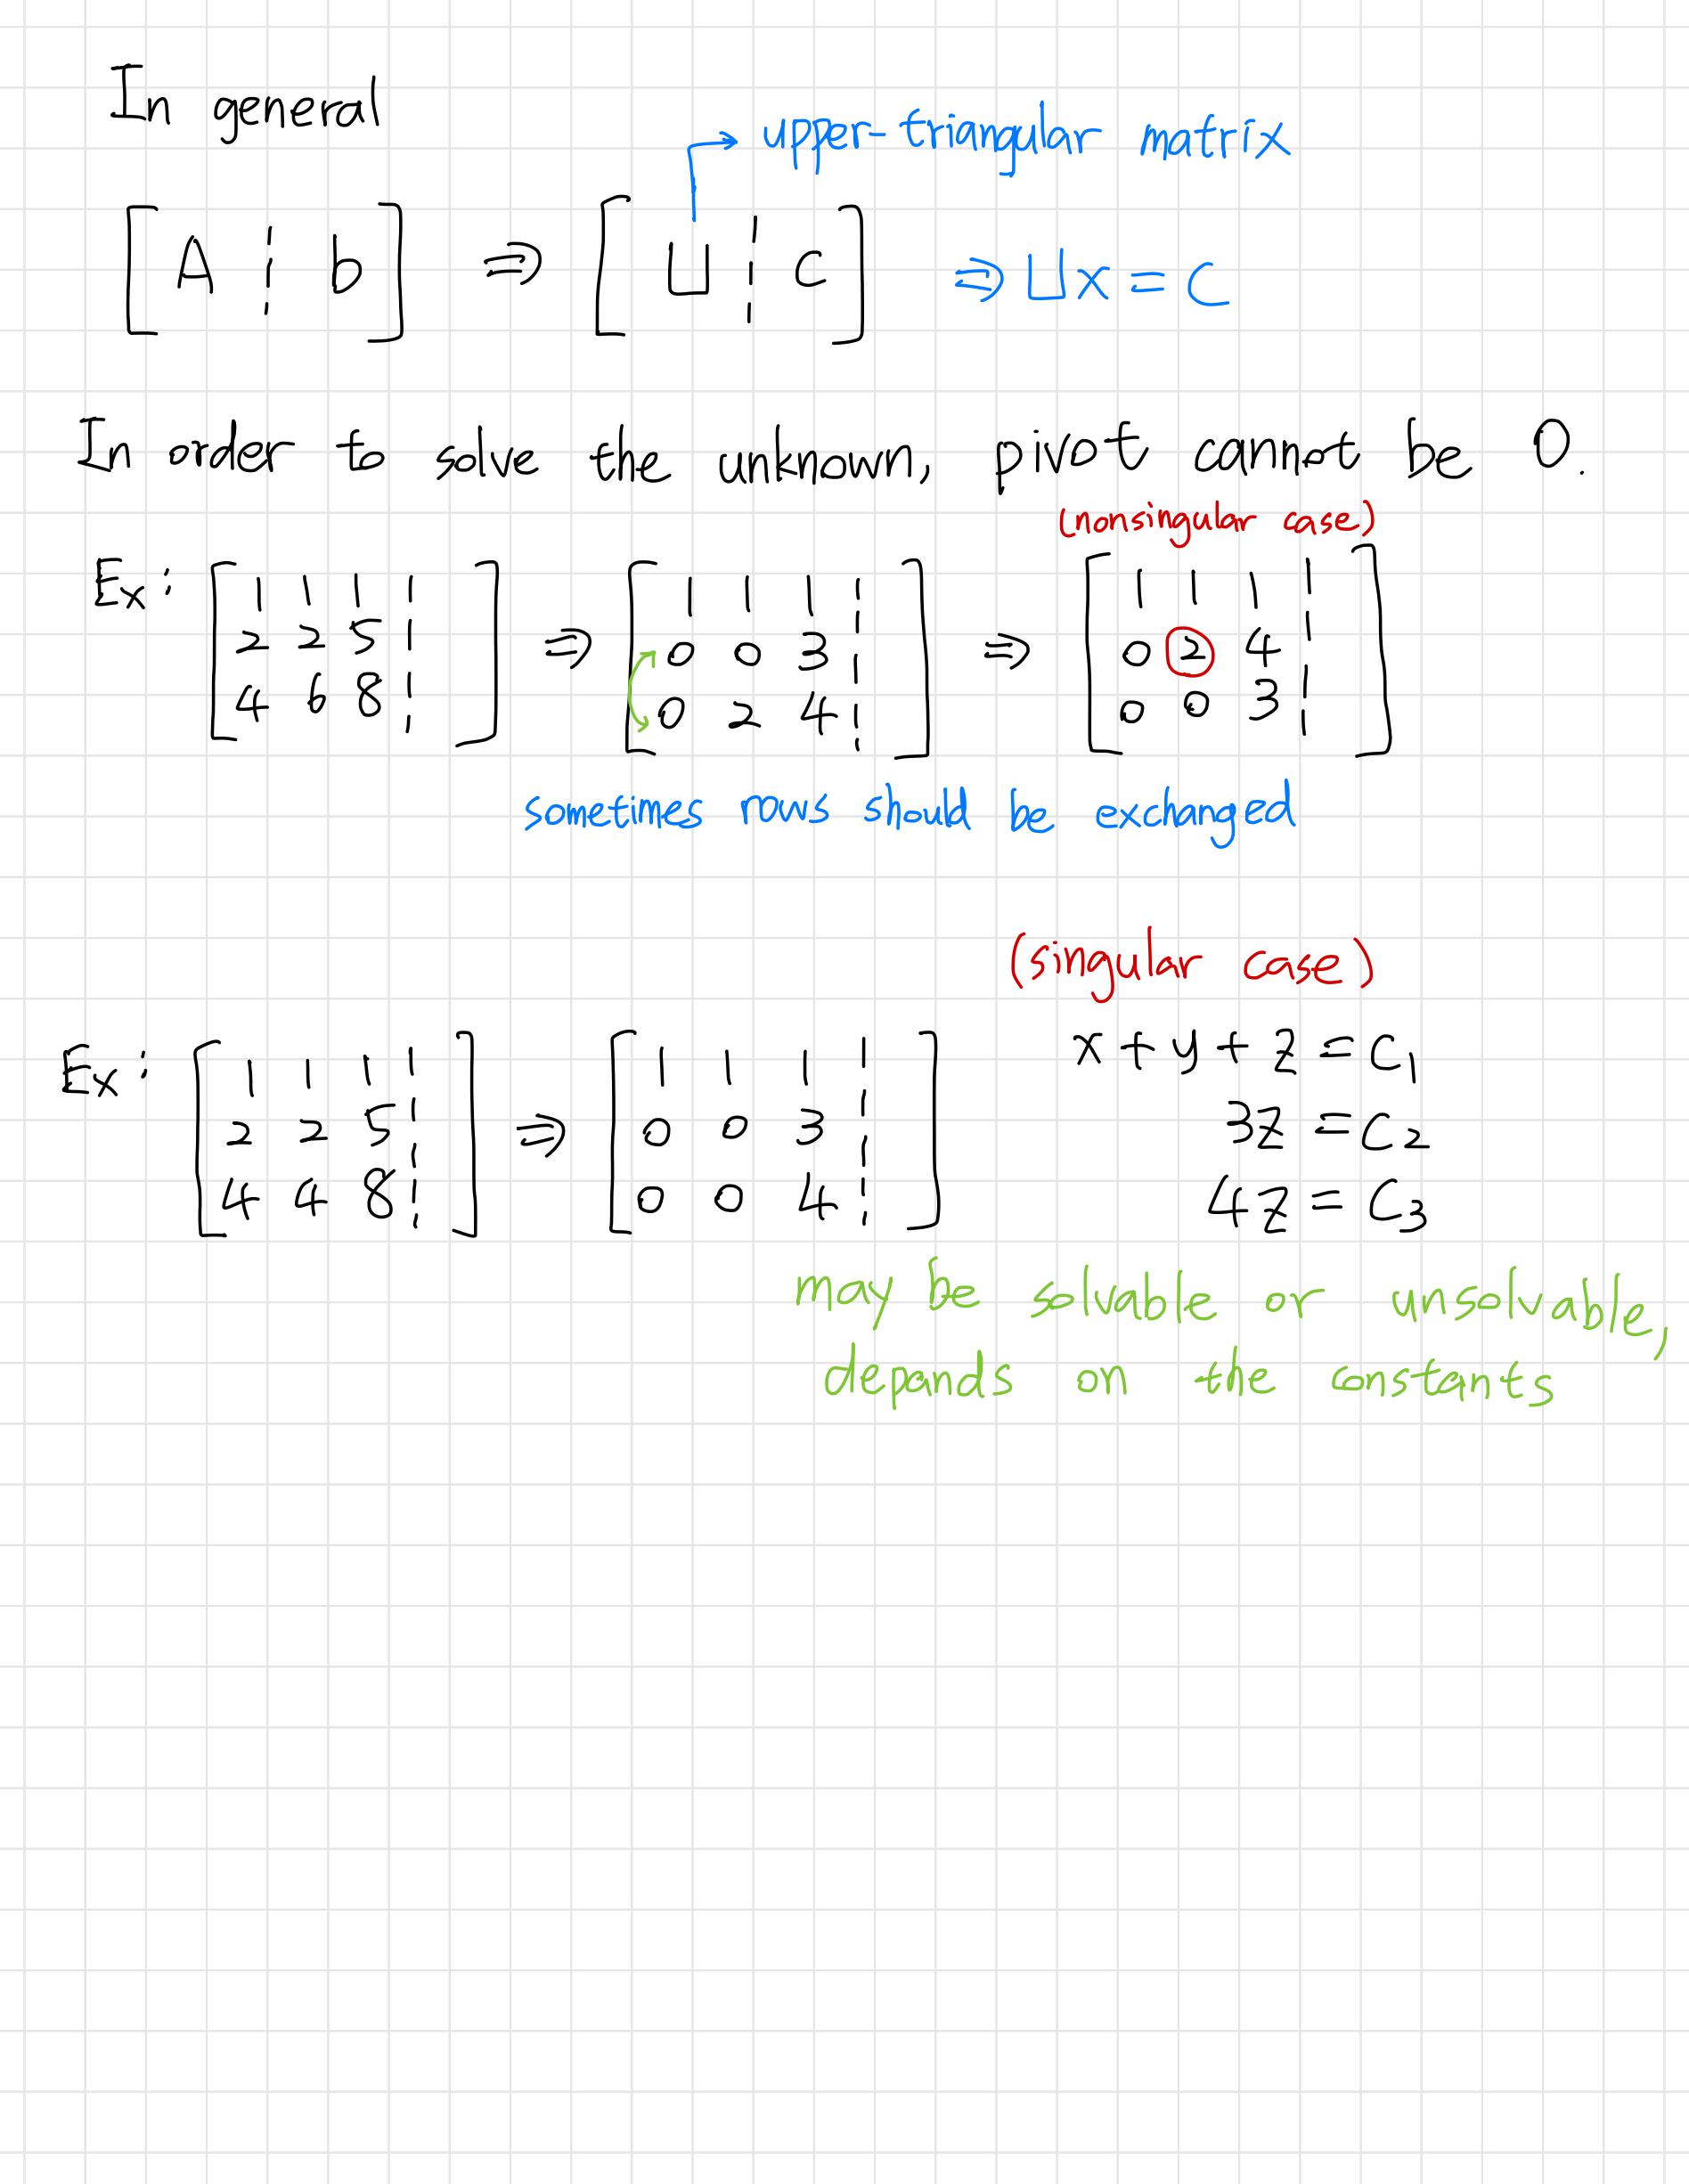 In general
→ upper-triangular matrix
[ A ¦ b ] ⇒ [ U ¦ c ] ⇒ Ux = c
In order to solve the unknown, pivot cannot be 0.
(nonsingular case)
Ex: [ 1 1 1 ¦ ] [ 1 1 1 ¦ ] [ 1 1 1 ¦ ]
2 2 5 ¦ ⇒ 0 0 3 ¦ ⇒ 0 2 4 ¦
4 6 8 ¦ 0 2 4 ¦ 0 0 3 ¦
sometimes rows should be exchanged
(singular case)
Ex: [ 1 1 1 ¦ ] [ 1 1 1 ¦ ] x + y + z = c₁
2 2 5 ¦ ⇒ 0 0 3 ¦ 3z = c₂
4 4 8 ¦ 0 0 4 ¦ 4z = c₃
may be solvable or unsolvable,
depends on the constants